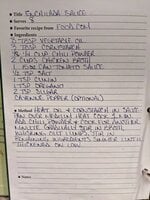 Title ENCHILADA SAUCE
Serves 8
Favorite recipe from FOOD.COM
Ingredients
3 TBSP VEGETABLE OIL
3 TBSP CORNSTARCH
CHILI POWDER
2 CUPS CHICKEN BROTH
1 CAN TOMATO SAUCE
1/2 TSP SALT
1 TSP CUMIN
1 TSP OREGANO
2 TSP SUGAR
CAYENNE PEPPER (OPTIONAL)
Method HEAT OIL & CORNSTARCH IN SAUCE
PAN OVER MEDIUM HEAT. COOK 1 MIN
ADD CHILI POWDER & COOK FOR ANOTHER
MINUTE. GRADUALLY STIR IN BROTH,
WHISKING OUT LUMPS. STIR IN
REMAINING INGREDIENTS. SIMMER UNTIL
THICKENS ON LOW.